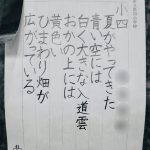 小四
夏がやってきた
青い空には
白く大きな入道雲
おかの上には
黄色い
ひまわり畑が
広がっている